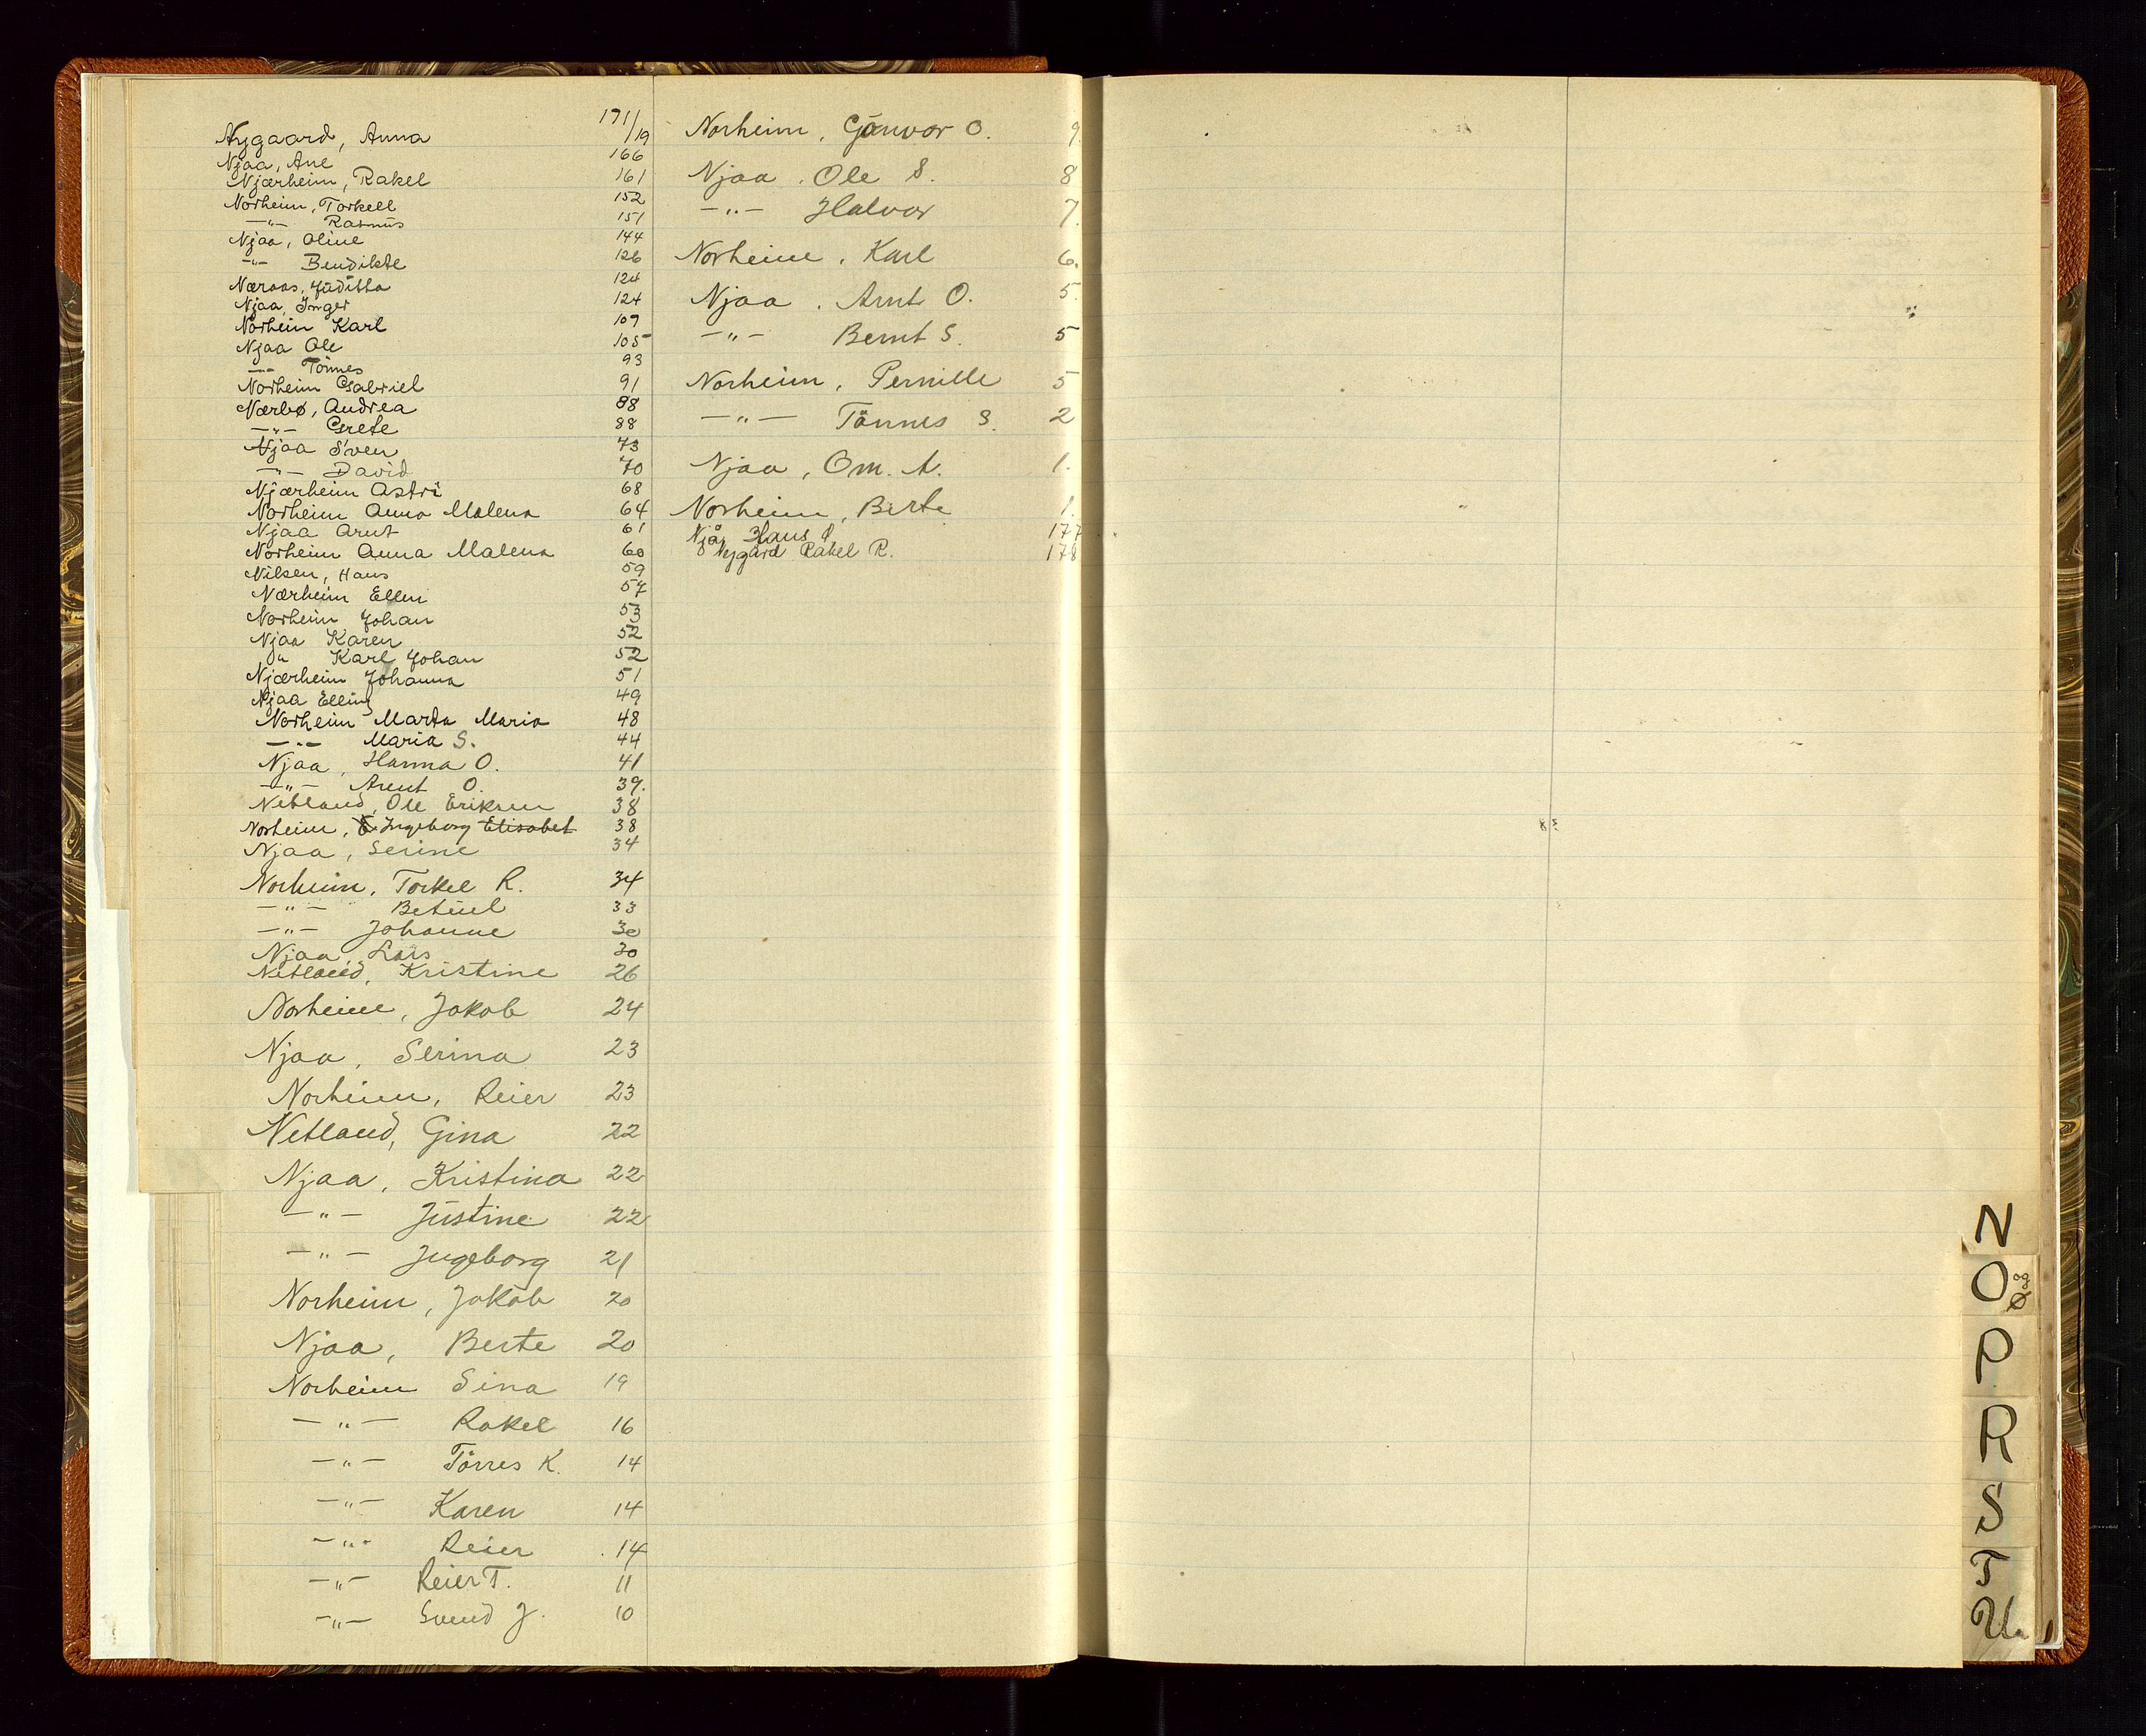 Nygaard, Anna 171/19
Njaa, Ane 166
Njærheim, Rakel 161
Norheim, Torkell 152
—"— Rasmus 151
Njaa, Oline 144
-"- Bendikte 126
Næraas, Juditta 124
Njaa, Inger 124
Norheim Karl 109
Njaa Ole 105
-"- Tönnes 93
Norheim Gabriel 91
Nærbø, Andrea 88
—"— Grete 88
Njaa Sven 73
—"— David 70
Njærheim Astri 68
Norheim Anna Malena 64
Njaa Arnt 61
Norheim Anna Malena 60
Nilsen, Hans 59
Nærheim Ellen 57
Norheim Johan 53
Njaa Karen 52
" Karl Johan 52
Njærheim Johanna 51
Njaa Elling 49
Norheim Marta Maria 48
—"— Maria S. 44
Njaa, Hanna O. 41
—"— Arent O. 39.
Netland, Ole Eriksen 38
Norheim, E Ingeborg Elisabet 38
Njaa, Serine 34
Norheim, Torkel R. 34
—"— Betuel 33
—"— Johanne 30
Njaa, Lars 30
Netland, Kristine 26
Norheim, Jakob 24
Njaa, Serina 23
Norheim, Reier 23
Netland, Gina 22
Njaa, Kristina 22
—"— Justine 22
—"— Ingeborg 21
Norheim, Jakob 20
Njaa, Berte 20
Norheim Sina 19
—"— Rakel 16
—"— Törres K. 14
—"— Karen 14
—"— Reier 14
—"— Reier T. 11
—"— Svend J. 10
Norheim, Gunvor O. 9.
Njaa, Ole S. 8
—"— Halvor 7.
Norheim, Karl 6.
Njaa, Arnt O. 5.
—"— Bernt S. 5
Norheim, Pernille 5
—"— Tönnes S. 2
Njaa, Om. A. 1.
Norheim, Berte 1.
Njå, Hans 177
Nygård Rakel R. 178
N
O
Ø
P
R
S
T
U